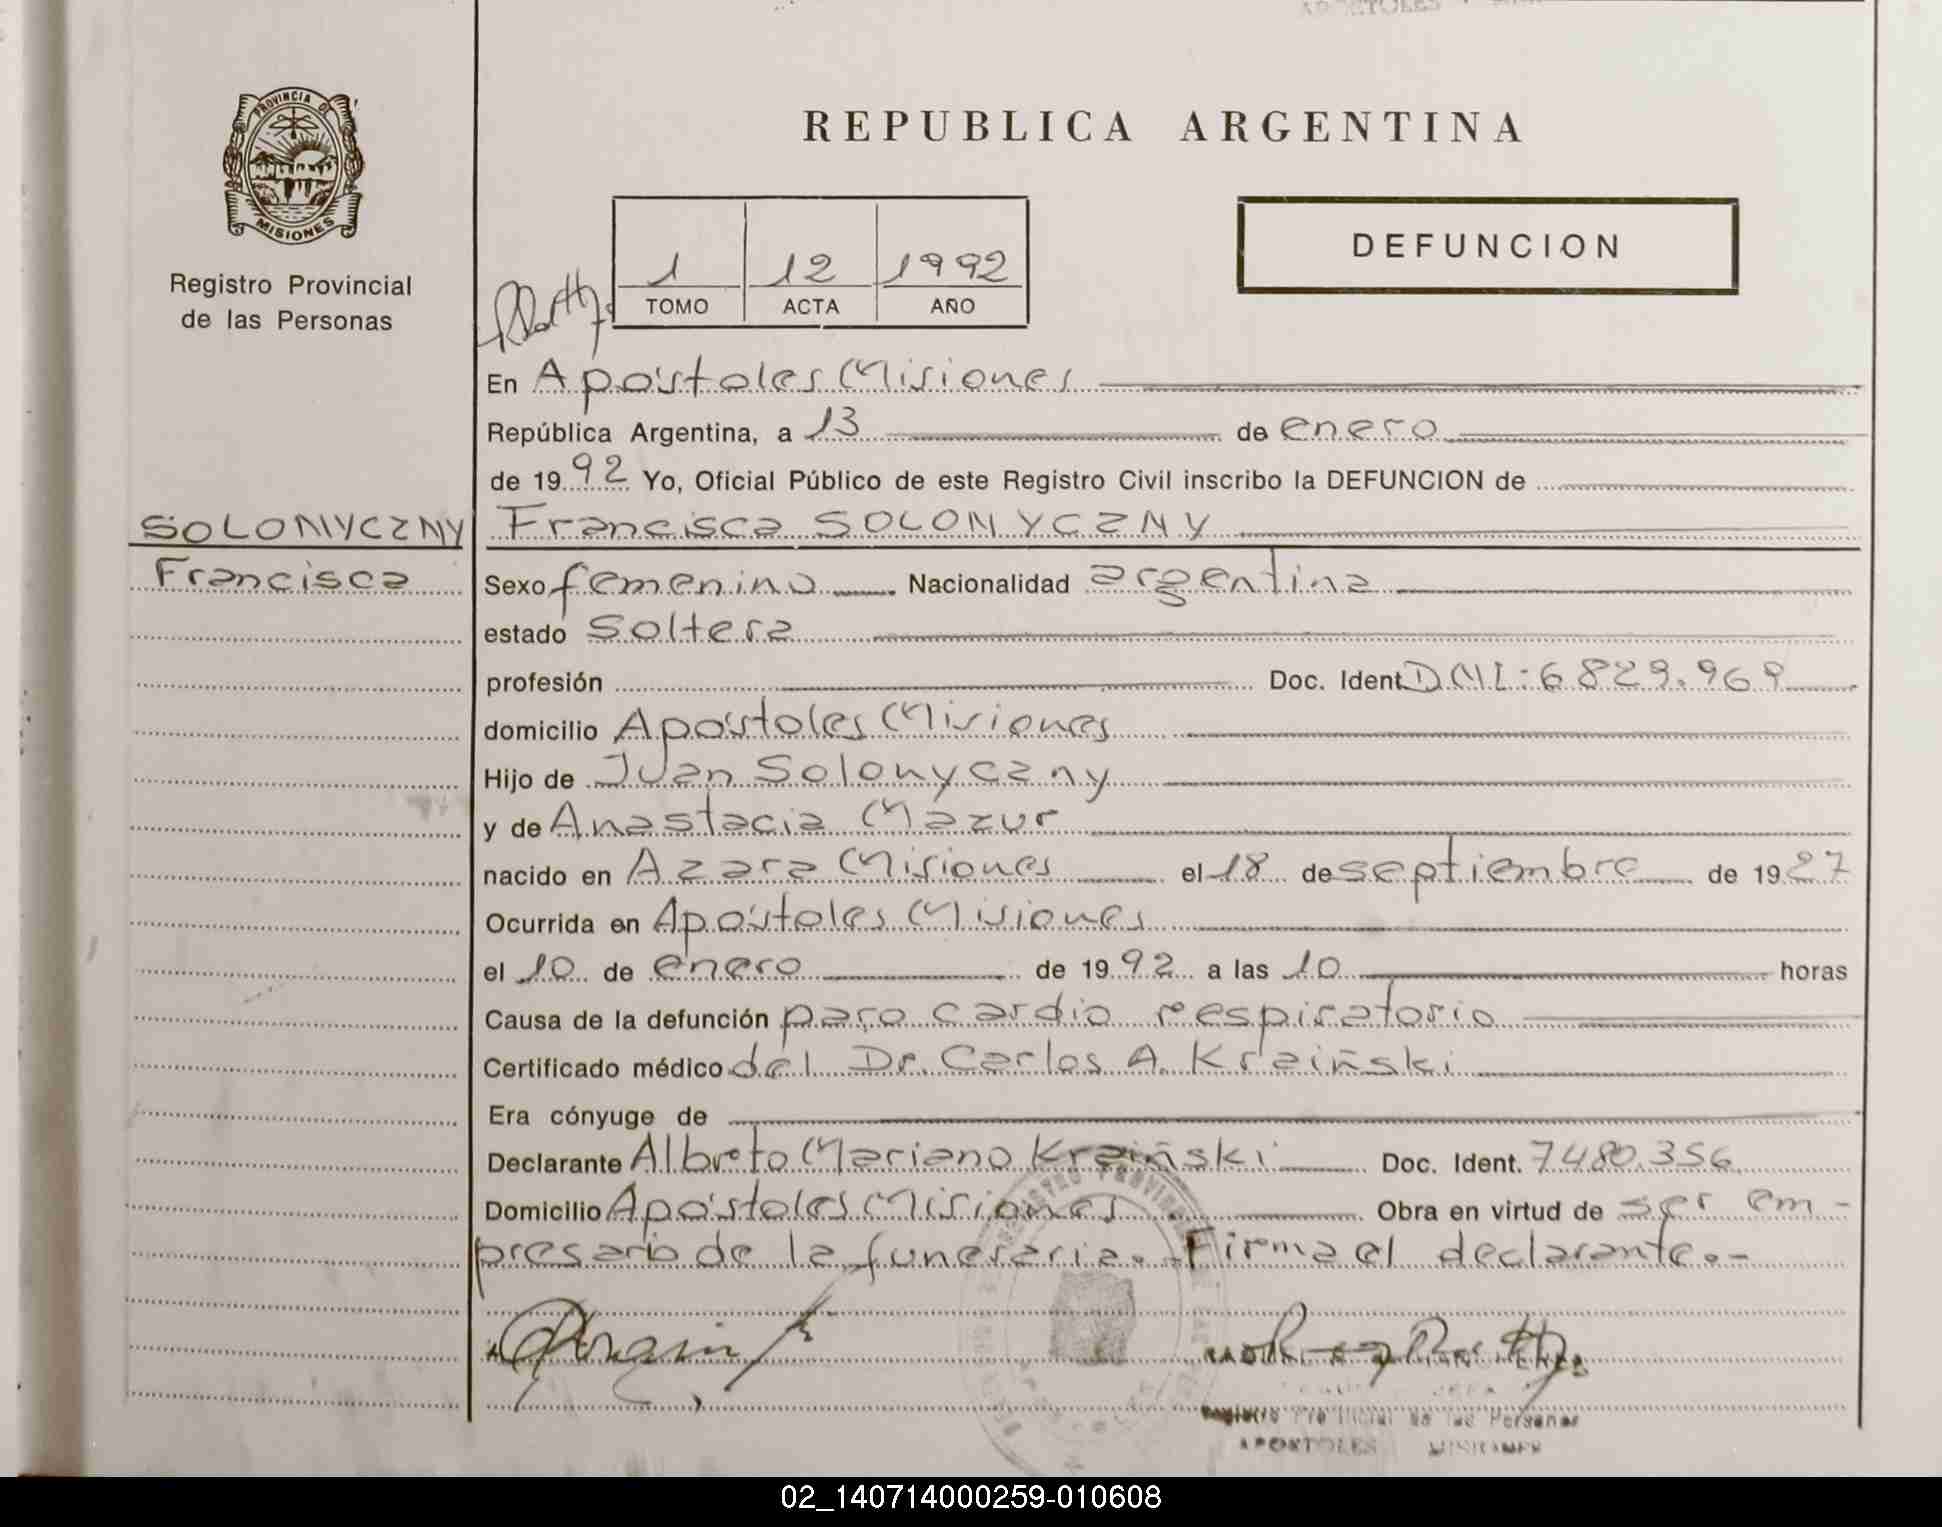 PROVINCIA DE
MISIONES
Registro Provincial
de las Personas
REPUBLICA ARGENTINA
DEFUNCION
1 12 1992
TOMO ACTA AÑO
En Apóstoles Misiones
República Argentina, a 13 de enero
de 1992 Yo, Oficial Público de este Registro Civil inscribo la DEFUNCION de
SOLONYCZNY
Francisca
Francisca SOLONYCZNY
Sexo femenino Nacionalidad argentina
estado Soltera
profesión Doc. Ident. DNI: 6829.969
domicilio Apóstoles Misiones
Hijo de Juan Solonyczny
y de Anastacia Mazur
nacido en Azara Misiones el 18 de septiembre de 1927
Ocurrida en Apóstoles Misiones
el 10 de enero de 1992 a las 10 horas
Causa de la defunción paro cardio respiratorio
Certificado médico del Dr. Carlos A. Kraiñski
Era cónyuge de
Declarante Albreto Mariano Kraiñski Doc. Ident. 7480.356
Domicilio Apóstoles Misiones Obra en virtud de ser em-
presario de la funeraria.- Firma el declarante.-
Registro Provincial de las Personas
APOSTOLES MISIONES
02_140714000259-010608